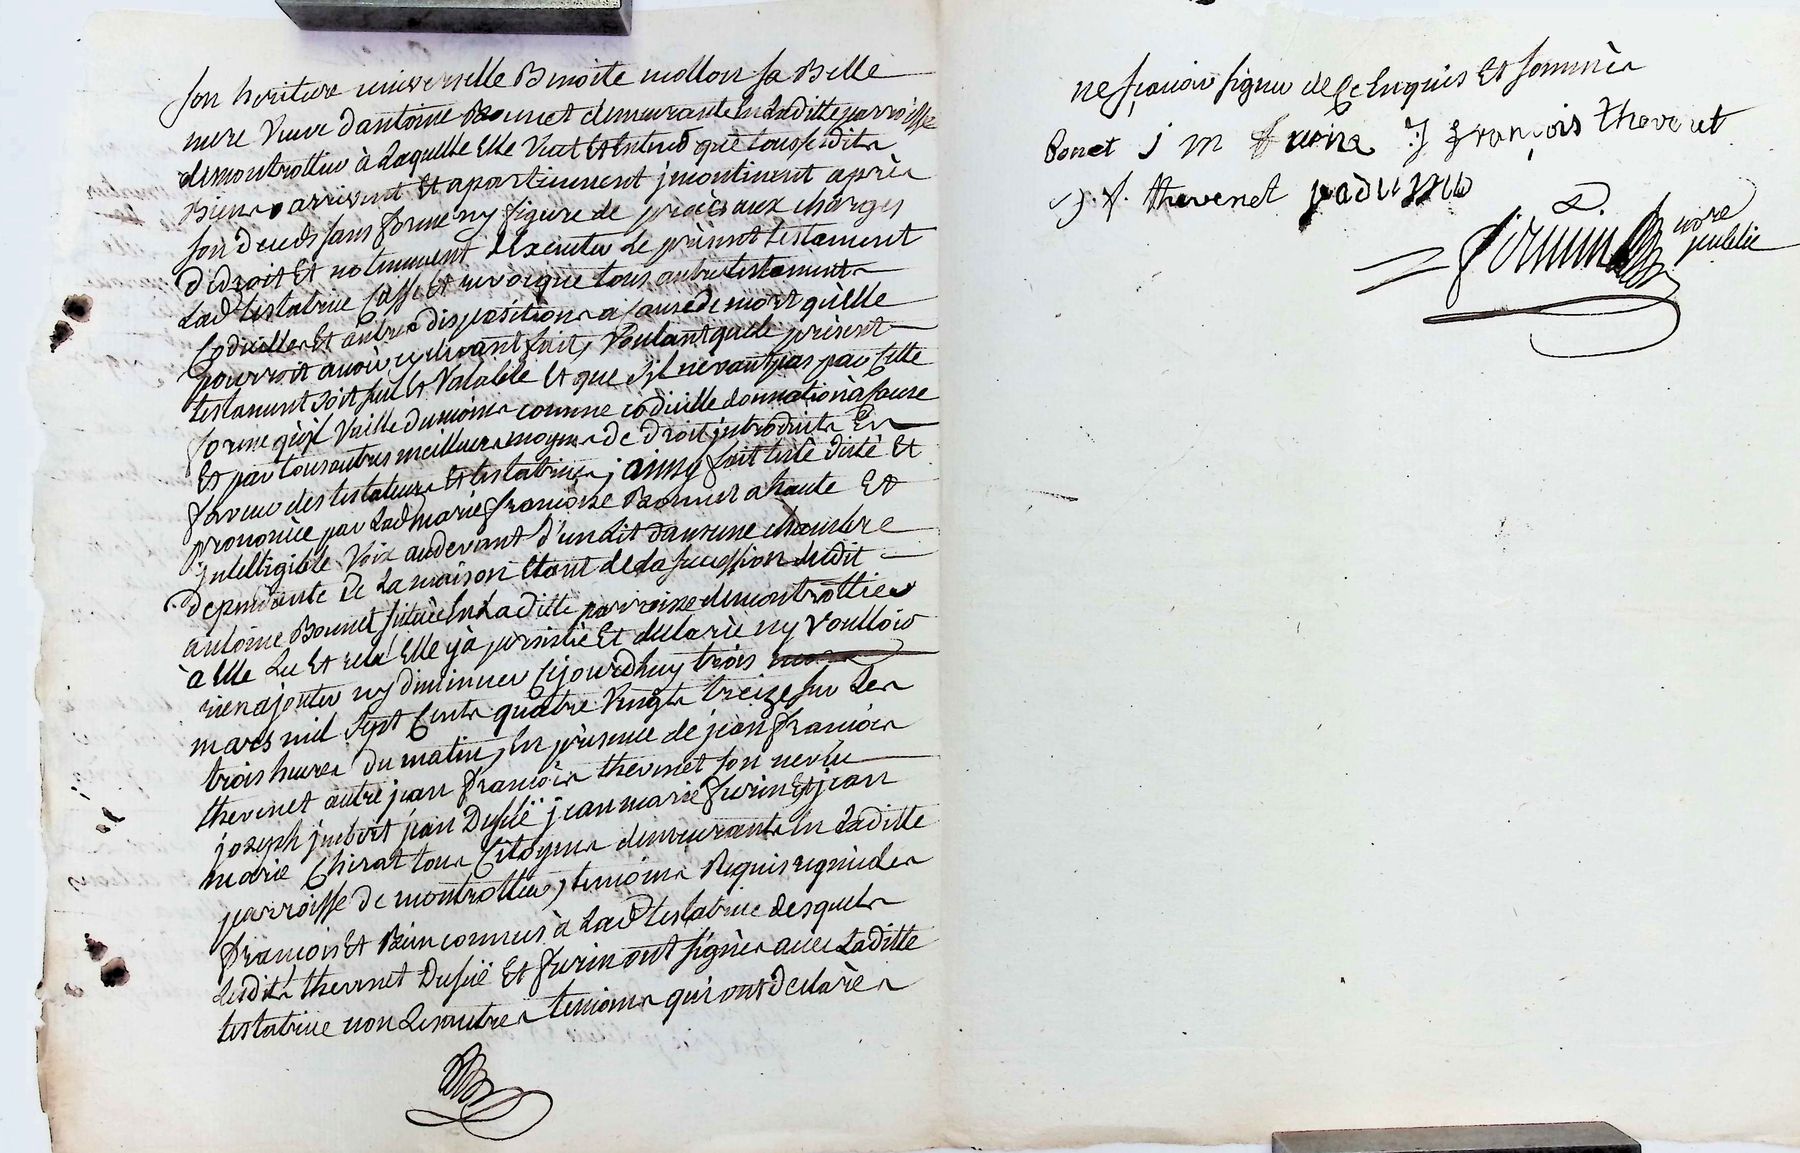 son heritiere universelle Benoite mollon sa Belle
mere Veuve dantoine Bonnet demeurante en Laditte parroisse
demontrottier à Laquelle Elle Veut Et Entend que tous sesdits
Biens arrivent Et apartiennent jncontinent après
son deceds sans forme ny figure de procès aux charges
De droit Et notemment dExécuter Le présent testament
Lad. testatrice Casse Et revoque tous autres testaments
Codicilles Et autres dispositions a cause de mort qu'elle
pourroit avoir cy devant fait, Voulant que le présent
testament soit seul Et Valable Et que s'jl ne vaut pas par Cette
forme qu'jl Vaille dumoins comme codicille donnation à cause
Et par tous autres meilleurs moyens de droit jntroduits En
faveur des testateurs Et testatrices, jainsy fait testé dicté Et
prononcée par Lad. marie françoise Bonnet a haute Et
jntelligible Voix audevant d'un Lit dans une chambre
Dependante de La maison Etant de la succession dudit
antoine Bonnet située En Laditte parroisse demontrottier
à Elle Lu Et relu Elle y à persistée Et declarée ny Voulloir
rien ajouter ny diminuer Cejourdhuy trois
mars mil sept Cents quatre Vingts treize sur Les
trois heures du matin, En présence de jean François
thevenet autre jean François thevenet son neveu
joseph jmbert jean Dufilé jean marie furin Et jean
marie Cherat tous Citoyens demeurants En Laditte
parroisse de montrottier, temoins Requis regnicoles
françois Et Bien connus à Lad. testatrice desquels
Lesdits thevenet Dufilé Et furin ont signés avec Laditte
testatrice non Les autres temoins qui ont declarés
ne sçavoir signer de Ce Enquis Et sommés
Bonet j m furine J françois thevenet
j. f. thevenet
no.re public